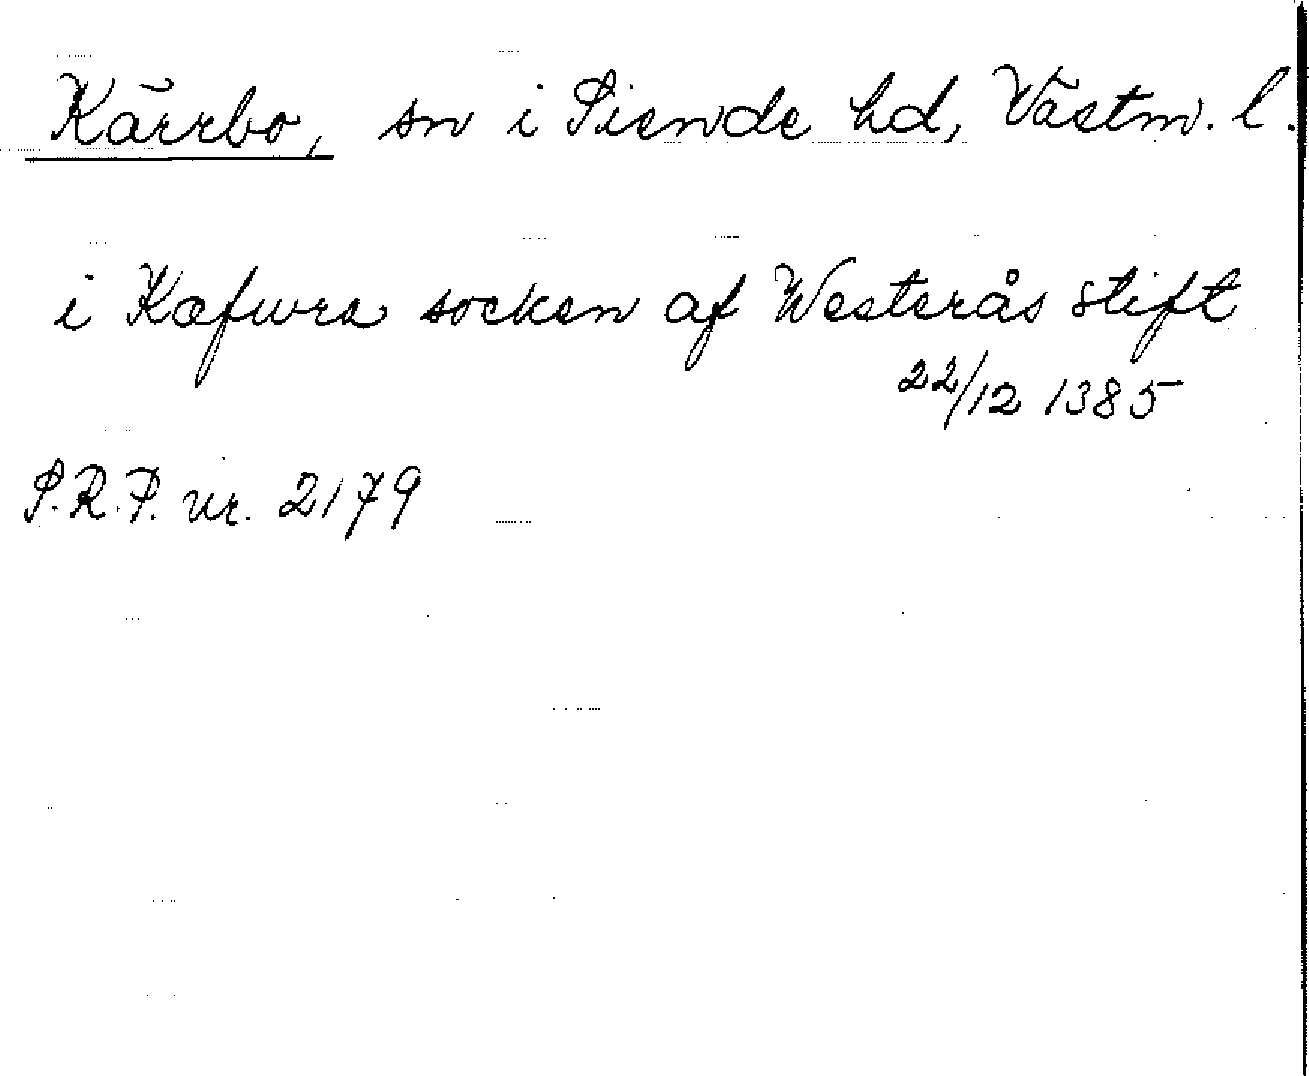 Kärrbo, sn i Siende hd, Västm. l.
i Kæfwra socken af Westerås stift
22/12 1385
S.R.P. nr. 2179